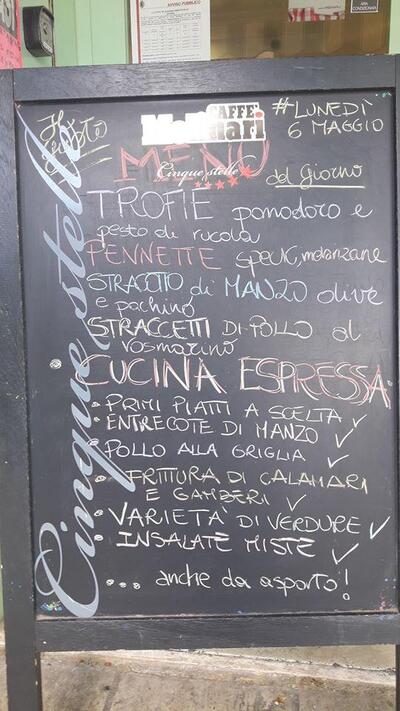 AVVISO PUBBLICO
ARIA CONDIZIONATA
Il Gusto
CAFFÈ
Molinari
#LUNEDÌ
6 MAGGIO
MENÙ
Cinque stelle
del Giorno
TROFIE pomodoro e
pesto de rucola
PENNETTE speck, melanzane
STRACCIO di MANZO olive
e pachino
STRACCETTI DI POLLO al
rosmarino
• CUCINA ESPRESSA
• PRIMI PIATTI A SCELTA ✓
• ENTRECOTE DI MANZO ✓
• POLLO ALLA GRIGLIA ✓
• FRITTURA DI CALAMARI
E GAMBERI ✓
• VARIETA' DI VERDURE ✓
• INSALATE MISTE ✓
... anche da asporto!
Cinque stelle